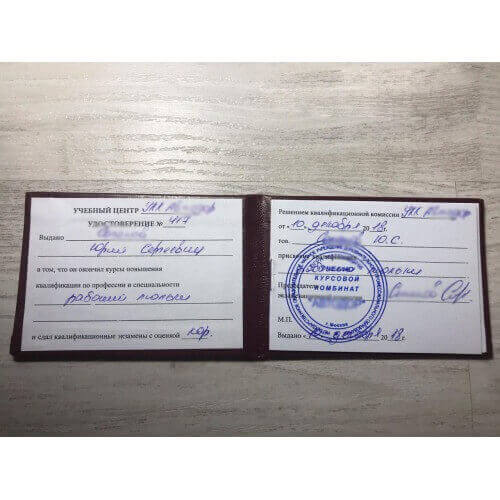 УЧЕБНЫЙ ЦЕНТР УКК
УДОСТОВЕРЕНИЕ № 417
Выдано
Юрий Сергеевич
в том, что он окончил курсы повышения
квалификации по профессии и специальности
рабочий люльки
и сдал квалификационные экзамены с оценкой хор.
Решением квалификационной комиссии УКК
от «10» декабря 2018г.
тов. Ю.С.
присвоена люльки
Председатель
М.П.
Выдано «10» декабря 2018г.
УЧЕБНО
КУРСОВОЙ
КОМБИНАТ
г. Москва